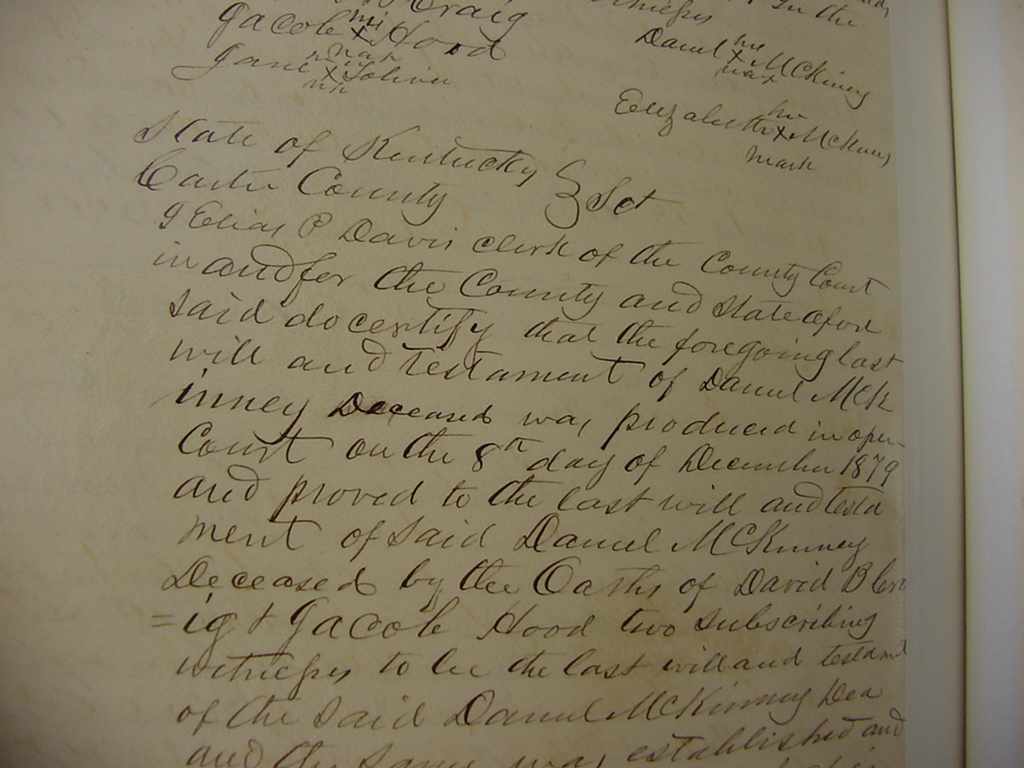 Craig In the
Jacob his x Hood Danl his x McKinny
Jane her x mark
Elizabeth her x McKinny
mark
State of Kentucky
Carter County Sct
I Elias P Davis clerk of the County Court
in and for the County and State afore
said do certify that the foregoing last
will and testament of Daniel McK
inney Deceased was produced in open
Court on the 8th day of December 1879
and proved to the last will and testa
ment of said Daniel McKinney
Deceased by the Oaths of David B Cra
=ig & Jacob Hood two subscribing
witnesses to be the last will and testamt
of the said Daniel McKinney Dea
and the same was established and